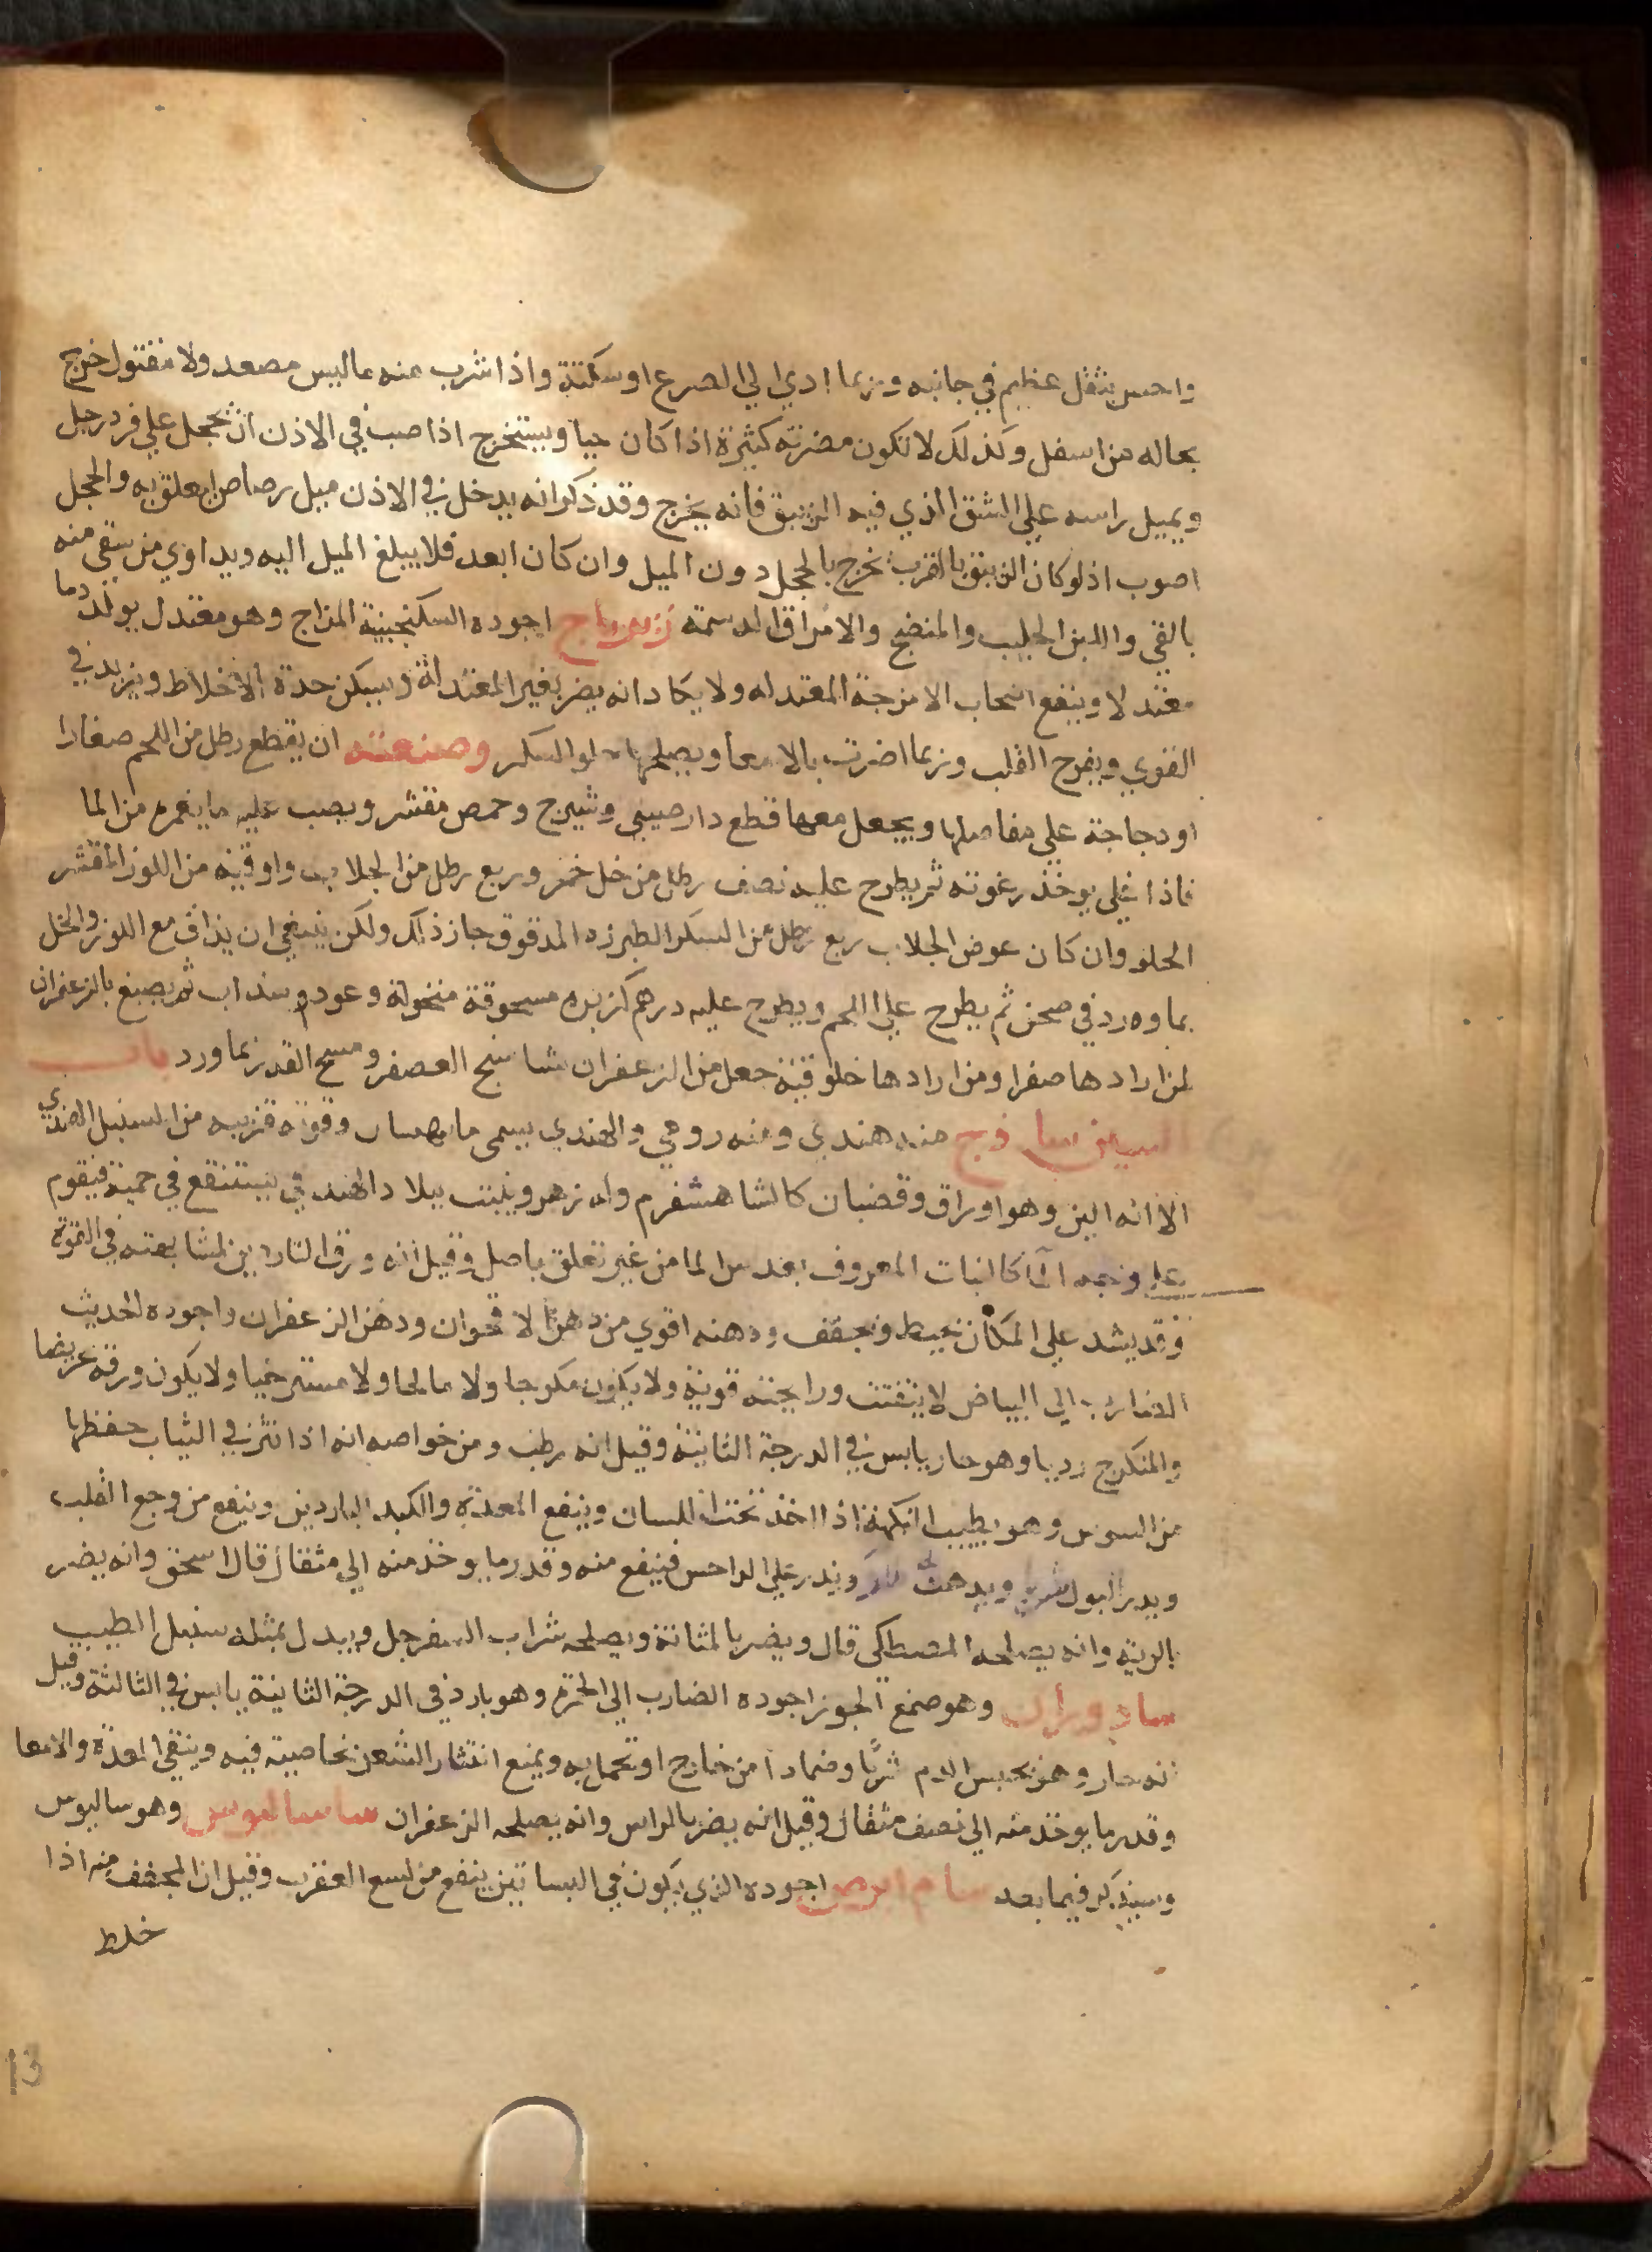 واحس بثقل عظيم في جانبه وربما ادي الي الصرع او سكتة واذا شرب منه ما ليس مصعد ولا مقتول خرج
بحاله من اسفل وكذلك لا تكون مضرته كثيرة اذا كان حيا ويستخرج اذا صب في الاذن ان يحجل علي فرد رجل
ويميل راسه علي الشق الذي فيه الزيبق فانه يخرج وقد ذكر انه يدخل في الاذن ميل رصاص ليعلق به والحجل
اصوب اذ لو كان الزيبق بالقرب لخرج بالحجل دون الميل وان كان ابعد فلا يبلغ الميل اليه ويداوي من سقي منه
بالقي واللبن الحليب والمنضج والامراق الدسمة زيرباج اجوده السكنجبينية المزاج وهو معتدل يولد دما
معتدلا وينفع اصحاب الامزجة المعتدله ولا يكاد انه يضر بغير المعتدلة ويسكن حدة الاخلاط ويزيد في
القوي ويفرح القلب وربما اضرت بالامعا ويصلحها حلوا السكر وصنعته ان يقطع رطل من اللحم صغارا
او دجاجة علي مفاصلها ويجعل معها قطع دارصيني وشيرج وحمص مقشر ويصب عليه ما يغمره من الما
فاذا غلي يوخذ رغوته ثم يطرح عليه نصف رطل من خل خمر وربع رطل من الجلاب واوقيه من اللوز المقشر
الحلو وان كان عوض الجلاب ربع رطل من السكر الطبرزد المدقوق جاز ذلك ولكن ينبغي ان يذاف مع اللوز والخل
بماورد في صحن ثم يطرح علي اللحم ويطرح عليه درهم كزبره مسحوقة منخولة وعود وسنداب ثم يصبغ بالزعفران
لمن ارادها صفرا ومن ارادها خلوقيه جعل من الزعفران شاسنج العصفر ومسح القدر بماورد باب
السين ساذج منه هندي ومنه رومي والهندي يسمي وقوته قريبه من السنبل الهندي
الا انه الين وهو اوراق وقضبان كالشاهشفرم وله زهر وينبت ببلاد الهند في يستنقع في حمية فيقوم
علي وجه الما كالنبات المعروف بعدس الما من غير تعلق باصل وقيل انه ورق الناردين لمشابهته في القوة
وقد يشد علي المكان بخيط ويجفف ودهنه اقوي من دهن الاقحوان ودهن الزعفران واجوده الحديث
الضارب الي البياض لا يتفتت ورايحته قوية ولا يكون مكرجا ولا مالحا ولا مسترخيا ولا يكون ورقه عريضا
والمتكرج رديا وهو حار يابس في الدرجة الثانية وقيل انه رطب ومن خواصه انه اذا نثر في الثياب حفظها
من السوس وهو يطيب النكهة اذا اخذ تحت اللسان وينفع المعدة والكبد الباردين وينفع من وجع القلب
ويدر البول شربا ويذر علي الداحس فينفع منه وقدر ما يوخذ منه الي مثقال قال اسحق وانه يضر
بالريه وانه يصلحه المصطكي قال ويضر بالمثانة ويصلحه شراب السفرجل وبدل بمثله سنبل الطيب
سادوران وهو صمغ الجوز اجوده الضارب الي الحمرة وهو بارد في الدرجة الثانية يابس في الثالثة وقيل
انه حار وهو يحبس الدم شربا وضمادا من خارج او تحمل به ويمنع انتثار الشعر بخاصية فيه وينقي المعدة والامعا
وقدر ما يوخذ منه الي نصف مثقال وقيل انه يضر بالراس وانه يصلحه الزعفران ساساليوس وهو ساليوس
وسيذكر فيما بعد سام ابرص اجوده الذي يكون في البساتين ينفع من لسع العقرب وقيل ان المجفف منه اذا
خلط
13